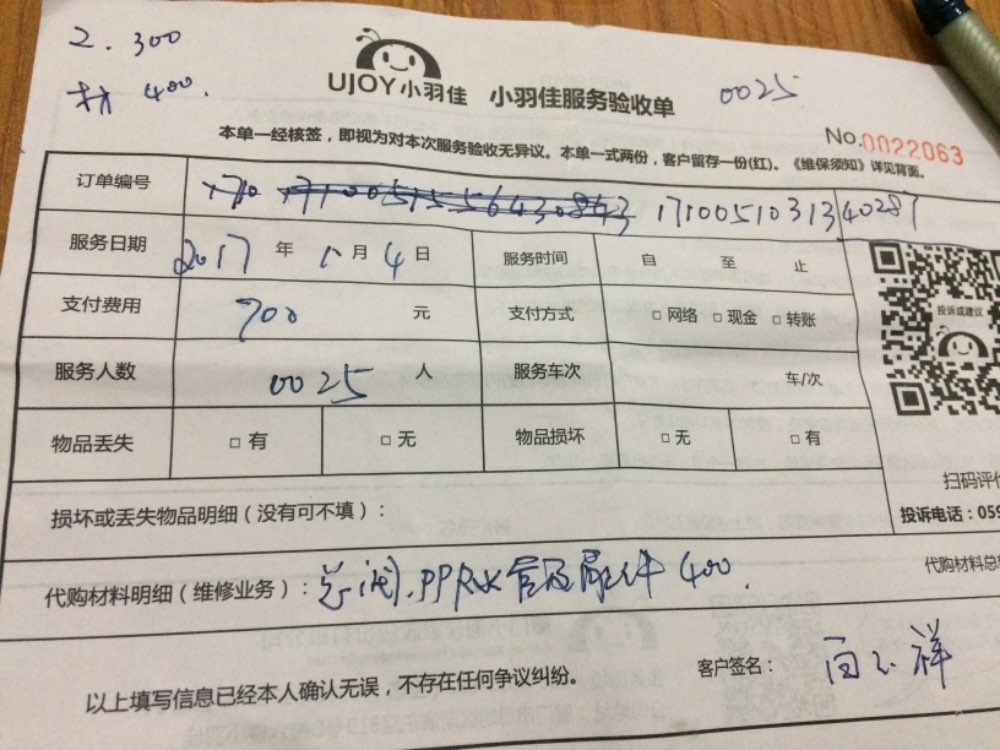 2.300
材 400.
0025
UJOY小羽佳 小羽佳服务验收单
No.0022063
本单一经核签，即视为对本次服务验收无异议。本单一式两份，客户留存一份(红)。《维保须知》详见背面。
订单编号 1710051031340287
服务日期 2017 年 月 4 日 服务时间 自 至 止
支付费用 700 元 支付方式 □ 网络 □ 现金 □ 转账
投诉或建议
服务人数 0025 人 服务车次 车/次
物品丢失 □ 有 □ 无 物品损坏 □ 无 □ 有
扫码评价
损坏或丢失物品明细（没有可不填）：
投诉电话：059
代购材料总
代购材料明细（维修业务）：总阀、PPR水管及配件 400.
客户签名：
以上填写信息已经本人确认无误，不存在任何争议纠纷。